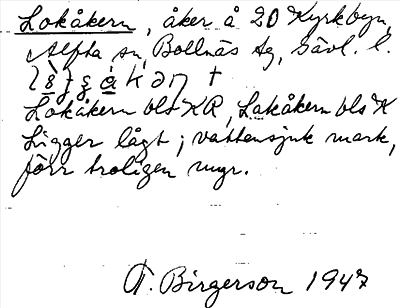 Lokåkern, åker å 20 Kyrkbyn,
Alfta sn, Bollnäs tg, Gävl. l.
Lokåkern bls KR, Lakåkern bls K
Ligger lågt; vattensjuk mark,
förr troligen myr.
A. Birgerson 1947